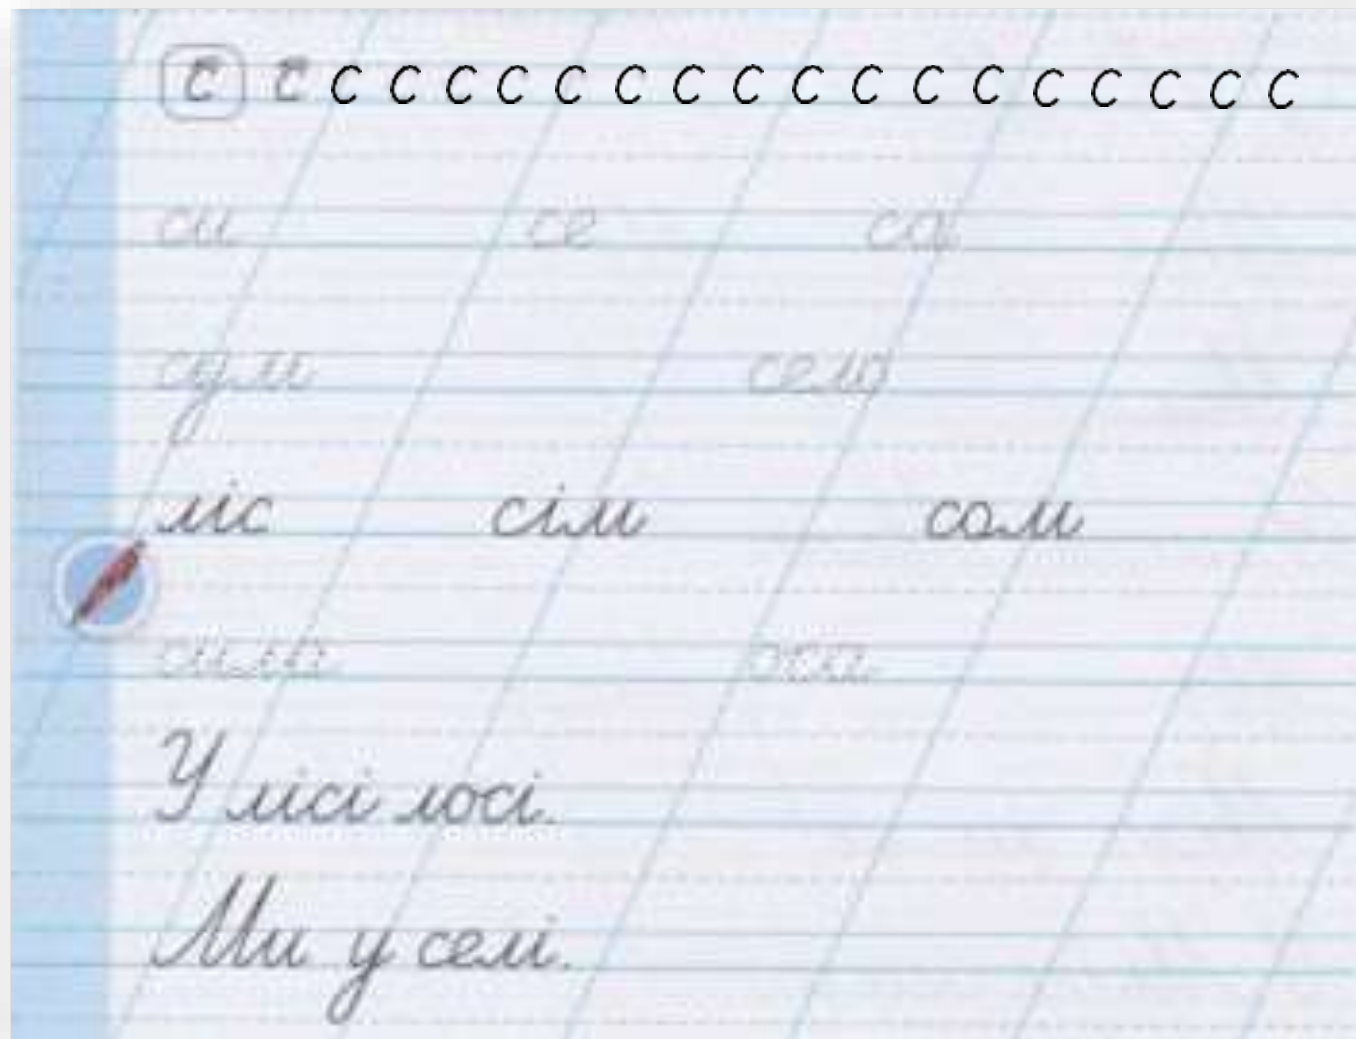 с с с с с с с с с с с с с с с с с с с
си се са
сум село
ліс сім сом
сила оса
У лісі лосі.
Ми у селі.